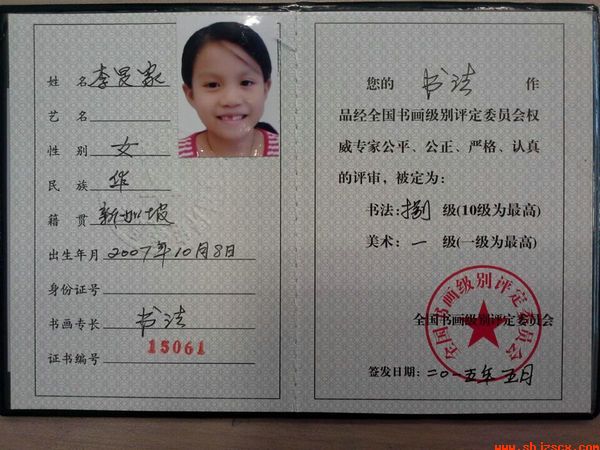 姓名 李昱家
艺名
性别 女
民族 华
籍贯 新加坡
出生年月 2007年10月8日
身份证号
书画专长 书法
证书编号 15061
您的 书法 作
品经全国书画级别评定委员会权
威专家公平、公正、严格、认真
的评审，被定为：
书法：捌 级(10级为最高)
美术：一 级(一级为最高)
全国书画级别评定委员会
全国书画级别评定委员会
签发日期：二〇一五年五月
www.shjzscx.com